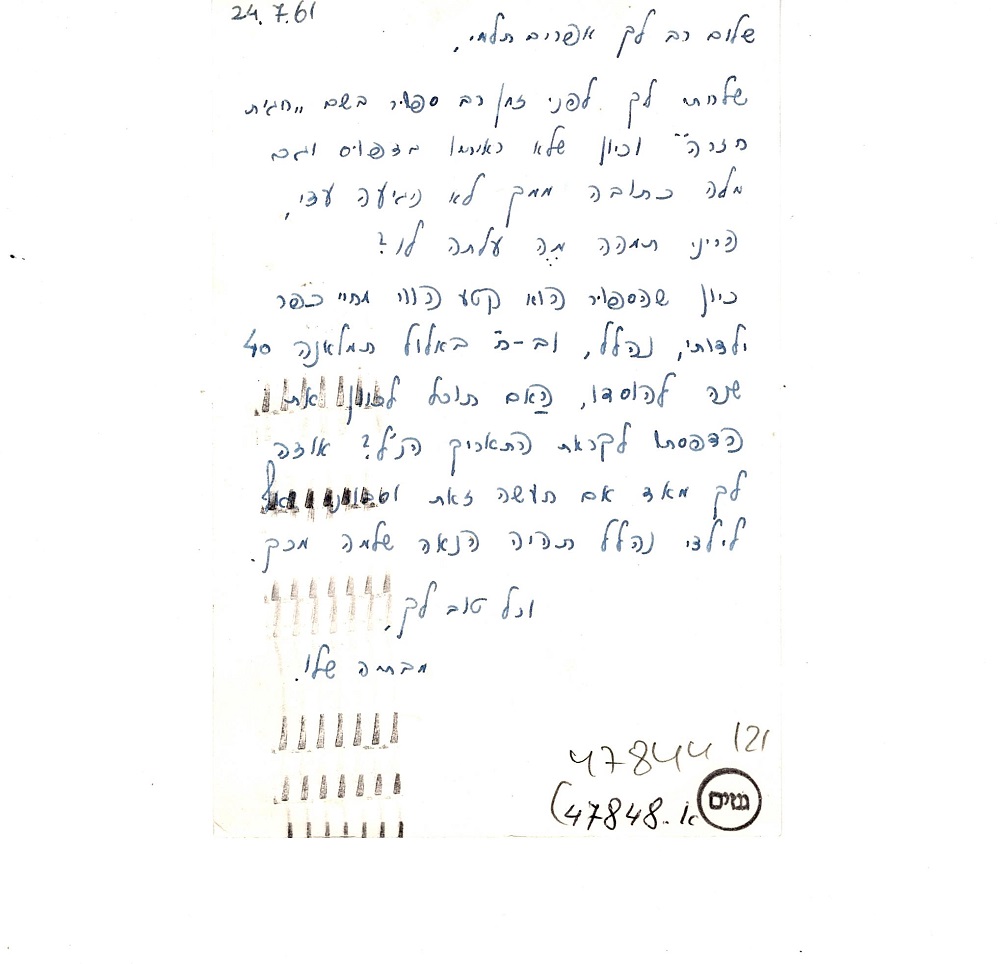 24.7.61
שלום רב לך אפרים תלמי,
שלחתי לך לפני זמן רב ספור בשם "חגית
חזרה" וכיון שלא ראיתיו בדפוס וגם
מלה כתובה ממך לא הגיעה עדי,
הריני תמהה מה עלתה לו?
כיון שהספור הוא קטע הווי מחיי כפר
ילדותי, נהלל, וב-ח' באלול תמלאנה 40
שנה להוסדו, האם תוכל לכוון את
הדפסתו לקראת התאריך הנ"ל? אודה
לך מאד אם תעשה זאת
לילדי נהלל תהיה הנאה שלמה מכך.
וכל טוב לך,
שלו.
121 47844
א. 47848)
גנזים